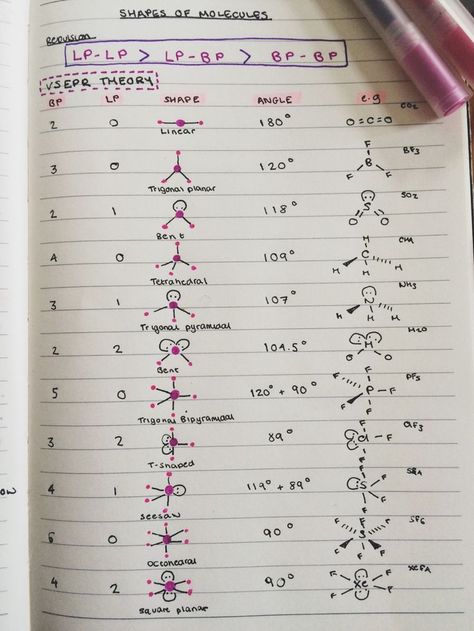 SHAPES OF MOLECULES
REPULSION
LP-LP > LP-BP > BP-BP
VSEPR THEORY
BP LP SHAPE ANGLE e.g
2 0 Linear 180° O=C=O CO2
3 0 Trigonal planar 120° F B F F BF3
2 1 Bent 118° S O O SO2
4 0 Tetrahedral 109° H C H H H CH4
3 1 Trigonal pyramidal 107° N H H H NH3
2 2 Bent 104.5° H O O H2O
5 0 Trigonal Bipyramidal 120° + 90° F F P F F F PF5
3 2 T-shaped 89° F Cl F F ClF3
4 1 Seesaw 119° + 89° F S F F F SF4
6 0 Octohedral 90° F F F S F F F SF6
4 2 square planar 90° F F Xe F F XeF4